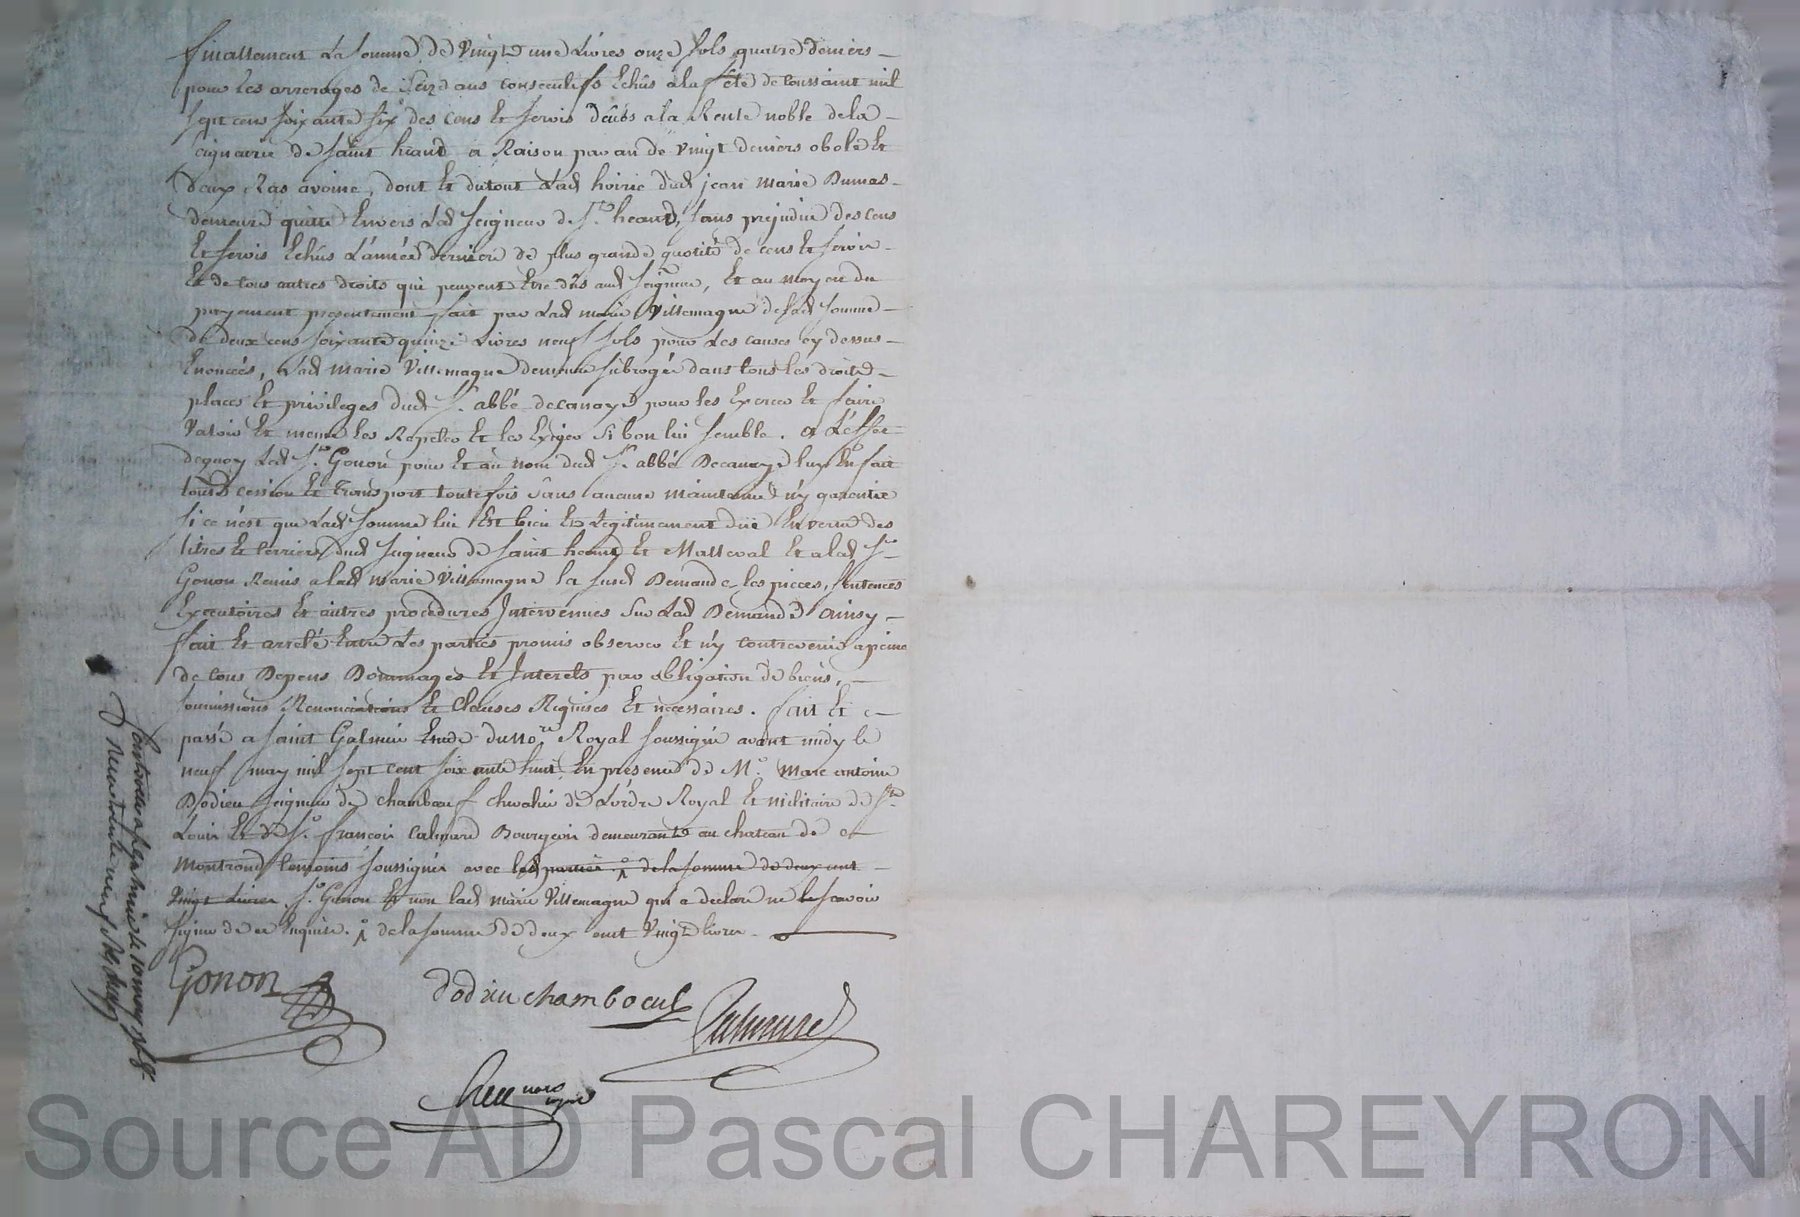 finallement la somme de vingt une livres onze sols quatre deniers
pour les arrerages de ans consecutifs Echûs a la fête de toussaint mil
sept cens soixante six des cens et servis deûbs a la Rente noble de la
de saint heand a Raison par an de vingt deniers obole et
deux Ras avoine, dont et du tout lad hoirie dud jean marie Dumas
demeure quitte Envers led seigneur de St heand, sans prejudice des cens
et servis Echûs l'année derniere de plus grande quotité de cens et servis
et de tous autres droits qui peuvent Etre dûs aud seigneur, et au moyen du
payement presentement fait par lad marie Villemagne de lad somme
de deux cens soixante quinze livres neuf sols pour les causes cy dessus
Enoncées, lad marie Villemagne demeure subrogée dans tous les droits
places et privileges dud sr. abbé decanaye pour les Exercer et faire
valoir et meme les Repeter et les Exiger si bon lui semble. a l'effet
dequoy led sr. Gonon pour et au nom dud sr. abbé Decanaye luy En fait
toute cession et transport toutefois sans aucune maintenue n'y garentie
si ce n'est que lad somme lui Est bien et legitimement düe En vertu des
titres et terriers dud seigneur de saint heand et Malleval et a led sr.
Gonon Remis a lad marie Villemagne la susd Demande les pieces, sentences
Executoires et autres procedures Intervenues sur lad Demande ainsy
fait et arreté Entre les parties promis observer et n'y contrevenir a peine
de tous Depens Dommages et Interets par obligation de biens,
soumissions Renonciations et clauses Requises et necessaires. fait et
passé a saint Galmier Etude du nore Royal soussigné avant midy le
neuf may mil sept cent soixante huit En presence de Mr. Marc antoine
Dodieu seigneur de chambœuf chvalier de L'ordre Royal et militaire de St.
Louis et de sr. françois Calmard Bourgeois demeurants au chateau de
Montrond temoins soussignés avec les parties de la somme de deux cent
vingt livres sr. Gonon et non lad marie Villemagne qui a declaré ne le sçavoir
signer de ce Enquise. de la somme de deux cent vingt livres
Gonon
dodieu chamboeuf
Calmard
nore
royal
Controllé a St galmier le 10 may 1768